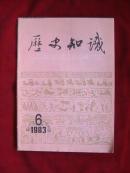 歷史知識
6
1983